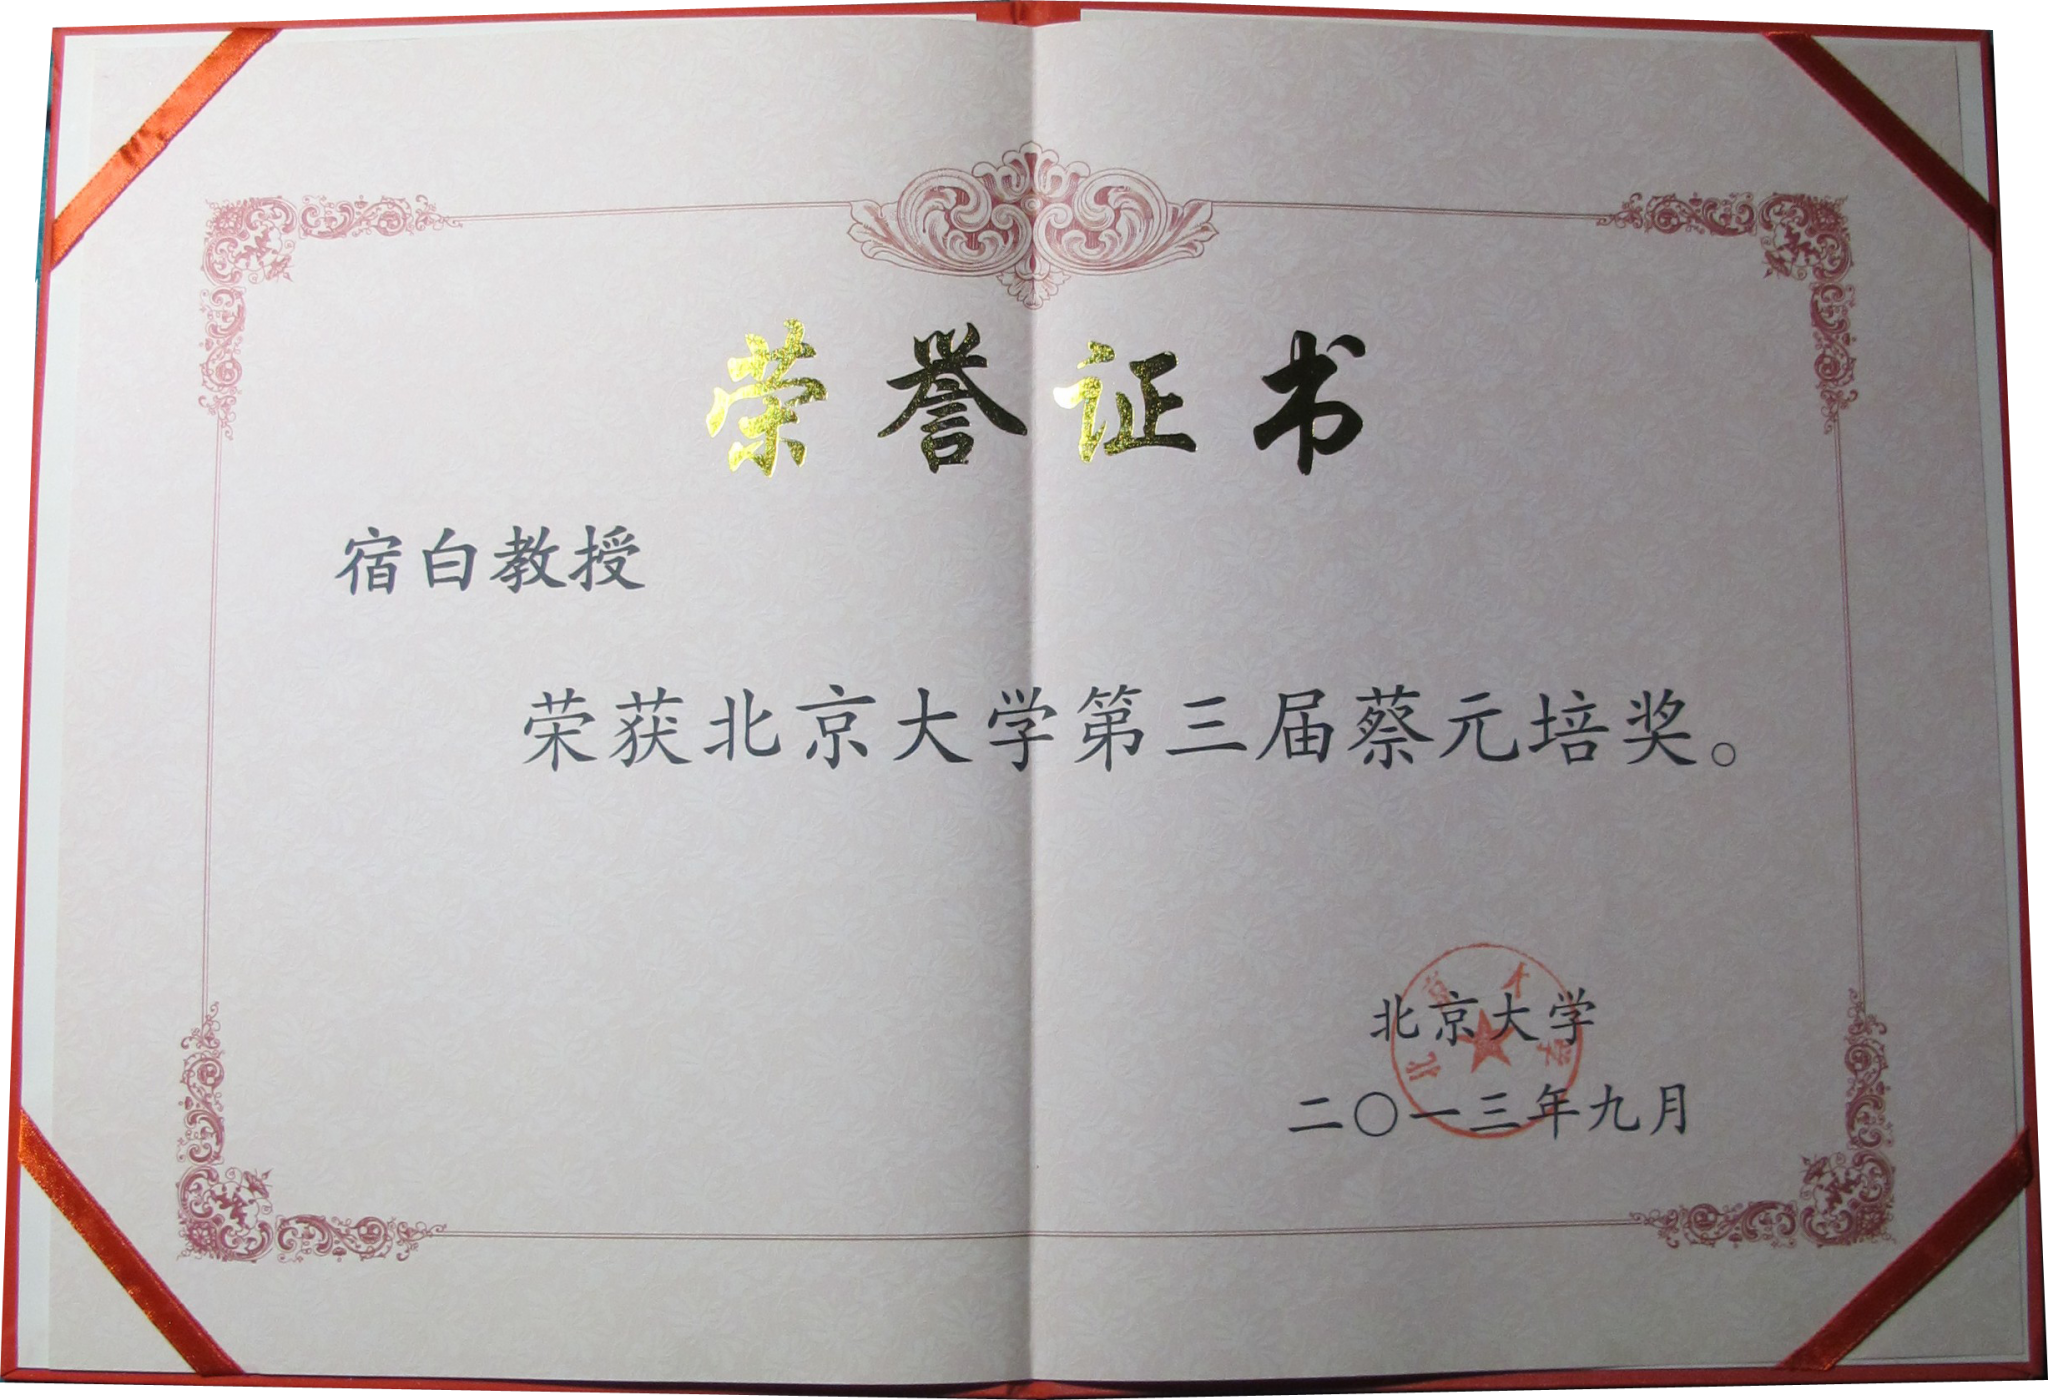 荣誉证书
宿白教授
荣获北京大学第三届蔡元培奖。
北京大学
北京大学
二〇一三年九月